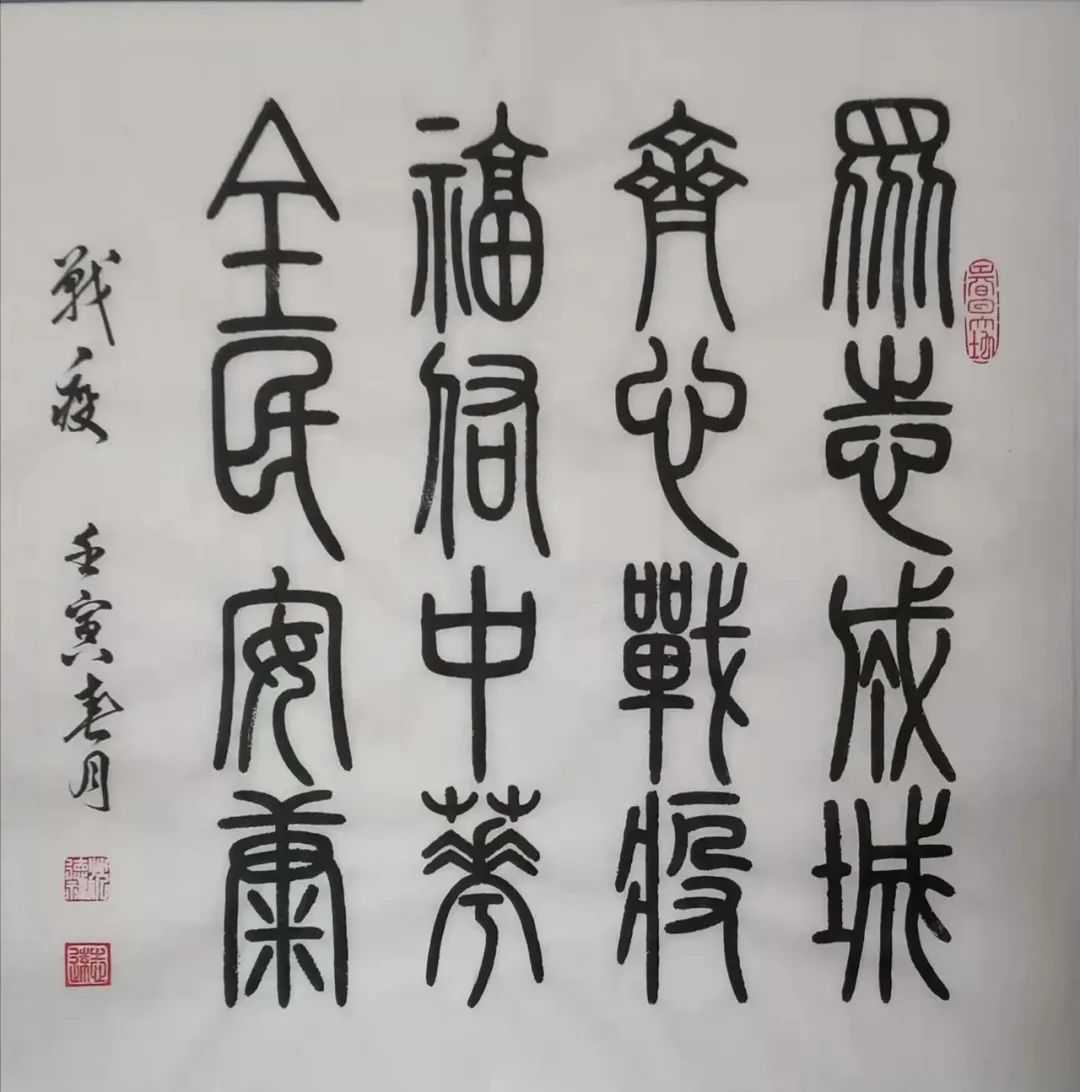 眾志成城
齊心戰疫
福佑中華
全民安康
戰疫 壬寅春月